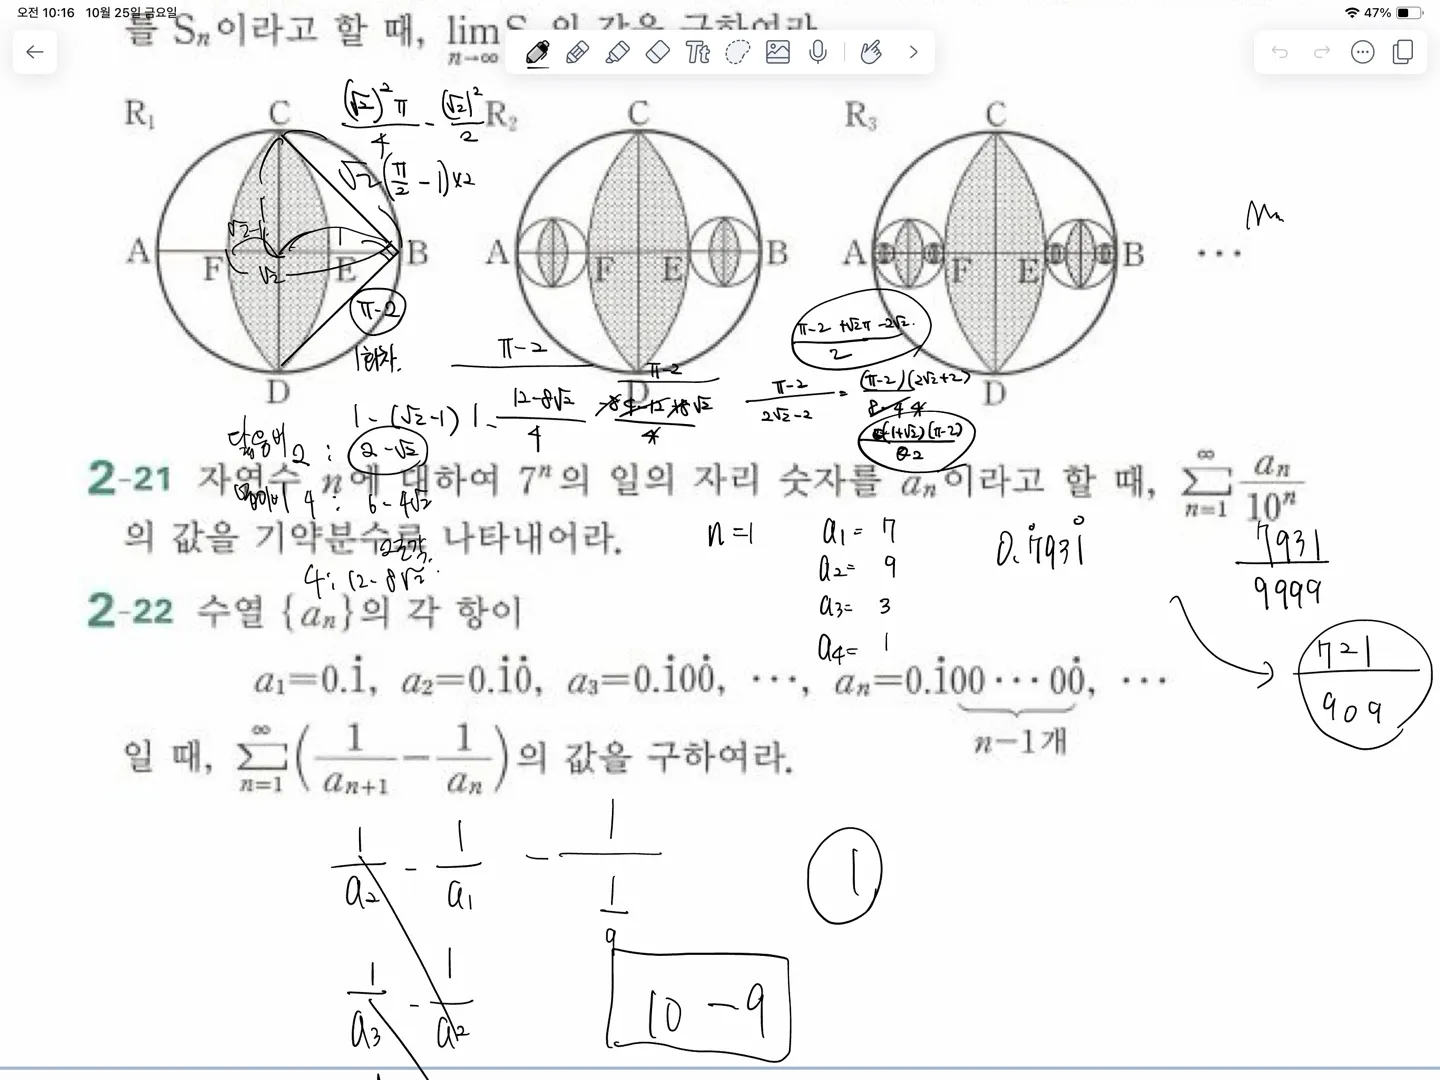 오전 10:16 10월 25일 금요일
47%
를 Sₙ이라고 할 때, lim Sₙ의 값을 구하여라.
n→∞
R₁ C A F E B D
(√2)²π/4 - (√2)²/2
√2(π/2 - 1)×2
√2-1
1
1
√2
π-2
1회차.
R₂ C A F E B D
R₃ C A F E B D
...
π-2
12-8√2
4
π-2
π-2/2√2-2 = (π-2)(2√2+2)/8-4
π-2+√2π-2√2/2
(1+√2)(π-2)
1-(√2-1)
2 : 2-√2
4 : 6-4√2
4: 12-8√2
2-21 자연수 n에 대하여 7ⁿ의 일의 자리 숫자를 aₙ이라고 할 때, ∞∑n=1 aₙ/10ⁿ
의 값을 기약분수로 나타내어라.
n=1
a₁= 7
a₂= 9
a₃= 3
a₄= 1
0.7̇931̇
7931/9999
721/909
2-22 수열 {aₙ}의 각 항이
a₁=0.1̇, a₂=0.1̇0̇, a₃=0.1̇00̇, ···, aₙ=0.1̇00···00̇, ···
n-1개
일 때, ∞∑n=1 (1/aₙ₊₁ - 1/aₙ)의 값을 구하여라.
1/a₂ - 1/a₁ - 1/(1/9)
1
1/a₃ - 1/a₂
10-9